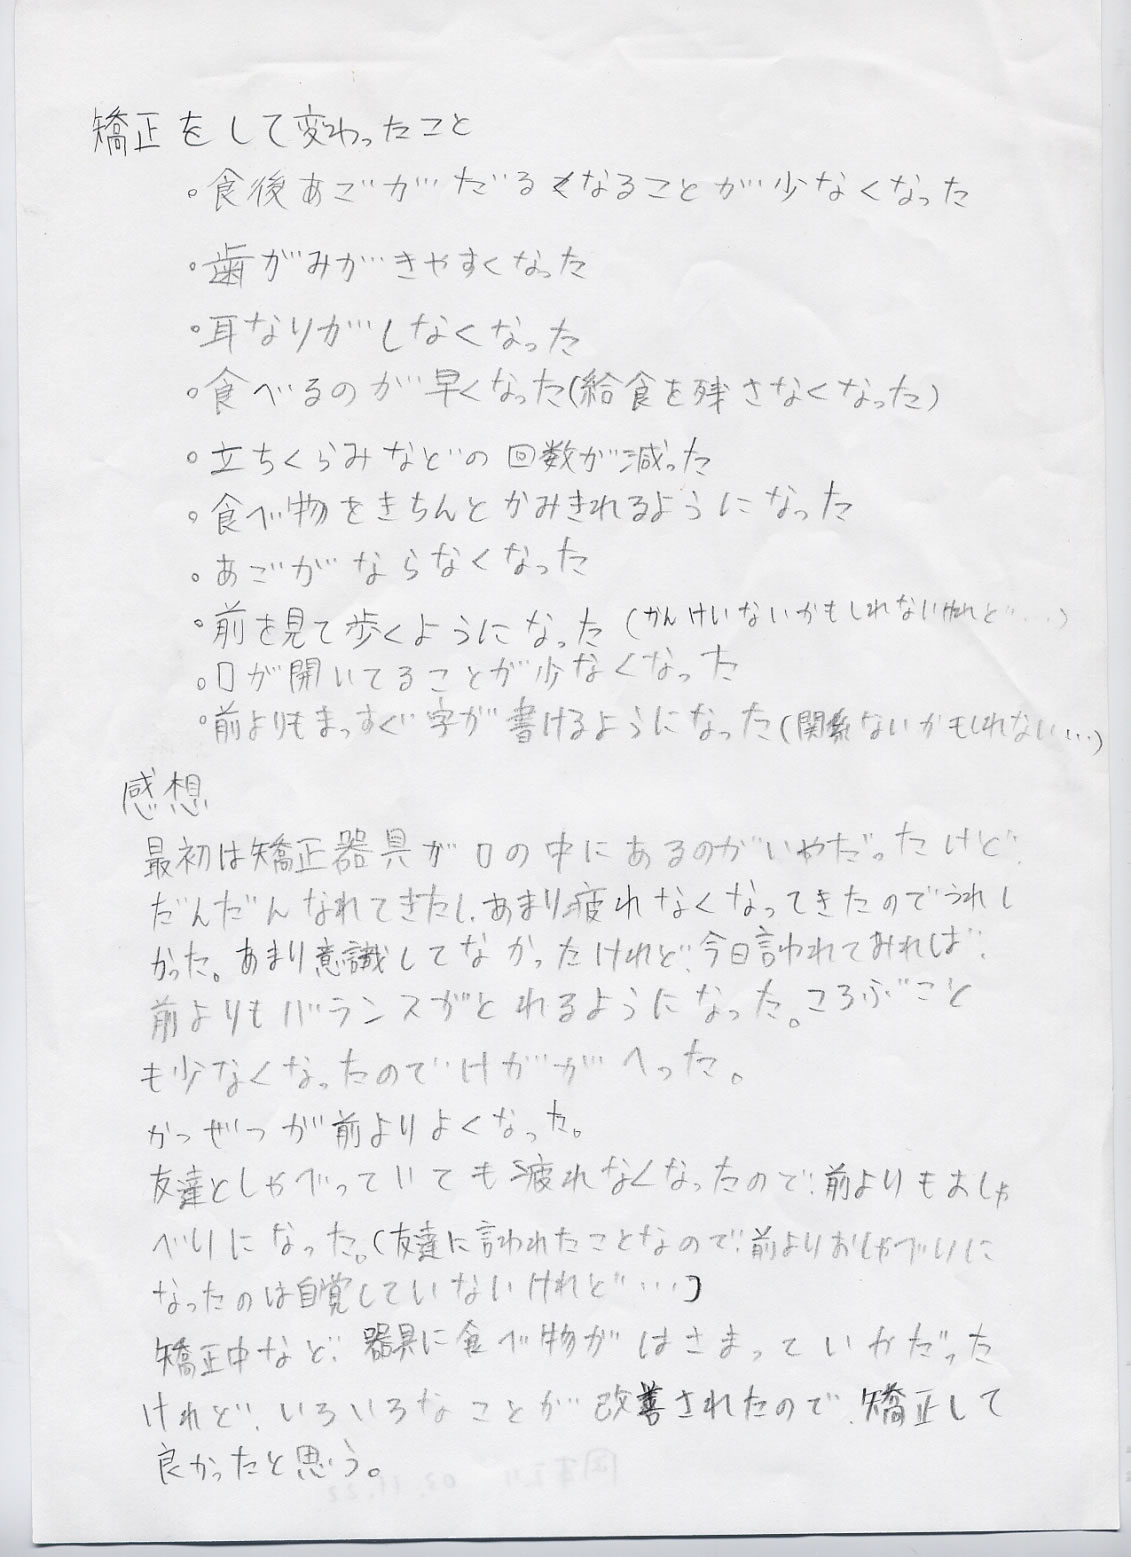 矯正をして変わったこと
。食後あごがだるくなることが少なくなった
。歯がみがきやすくなった
。耳なりがしなくなった
。食べるのが早くなった(給食を残さなくなった)
。立ちくらみなどの回数が減った
。食べ物をきちんとかみきれるようになった
。あごがならなくなった
。前を見て歩くようになった(かんけいないかもしれないけれど…)
。口が開いてることが少なくなった
。前よりもまっすぐ字が書けるようになった(関係ないかもしれない…)
感想
最初は矯正器具が口の中にあるのがいやだったけど、
だんだんなれてきたし、あまり疲れなくなってきたのでうれし
かった。あまり意識してなかったけれど、今日言われておれば、
前よりもバランスがとれるようになった。ころぶこと
も少なくなったのでけががへった。
かつぜつが前よりよくなった。
友達としゃべっていても疲れなくなったので、前よりもおしゃ
べりになった。(友達に言われたことなので、前よりおしゃべりに
なったのは自覚していないけれど…)
矯正中など、器具に食べ物がはさまっていやだった
けれど、いろいろなことが改善されたので、矯正して
良かったと思う。